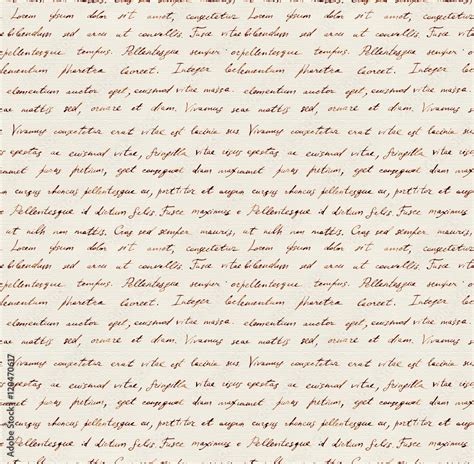 Lorem ipsum dolor sit amet, consectetur Lorem ipsum dolor sit amet, consectetur
bibendum sed arcu ut convallis. Fusce vitae bibendum sed arcu ut convallis. Fusce
orpellentesque tempus. Pellentesque semper orpellentesque tempus. Pellentesque semper
elementum pharetra laoreet. Integer loelementum pharetra laoreet. Integer
elementum auctor eget, euismod vitae massa. elementum auctor eget, euismod vitae massa.
mattis sed, ornare et diam. Vivamus mattis sed, ornare et diam. Vivamus
Vivamus consectetur erat vitae est lacinia sus Vivamus consectetur erat vitae est lacinia
egestas ac euismod vitae, fringilla vitae risus egestas ac euismod vitae, fringilla vitae
param, eget congue diam param, eget congue diam
cursus rhoncus pellentesque ac, porttitor et augue cursus rhoncus pellentesque ac, porttitor et augue
Pellentesque id dictum felis. Fusce maximus Pellentesque id dictum felis. Fusce maximus
ut nibh non mattis. Cras sed semper mauris, ut nibh non mattis. Cras sed semper mauris,
Lorem ipsum dolor sit amet, consectetur Lorem ipsum dolor sit amet, consectetur
bibendum sed arcu ut convallis. Fusce vitae bibendum sed arcu ut convallis. Fusce
orpellentesque tempus. Pellentesque semper orpellentesque tempus. Pellentesque semper
elementum pharetra laoreet. Integer loelementum pharetra laoreet. Integer
elementum auctor eget, euismod vitae massa. elementum auctor eget, euismod vitae massa.
mattis sed, ornare et diam. Vivamus mattis sed, ornare et diam. Vivamus
Vivamus consectetur erat vitae est lacinia sus Vivamus consectetur erat vitae est lacinia
egestas ac euismod vitae, fringilla vitae risus egestas ac euismod vitae, fringilla vitae
param, eget congue diam param, eget congue diam
cursus rhoncus pellentesque ac, porttitor et augue cursus rhoncus pellentesque ac, porttitor et augue
Pellentesque id dictum felis. Fusce maximus Pellentesque id dictum felis. Fusce maximus
Adobe Stock | #128470617